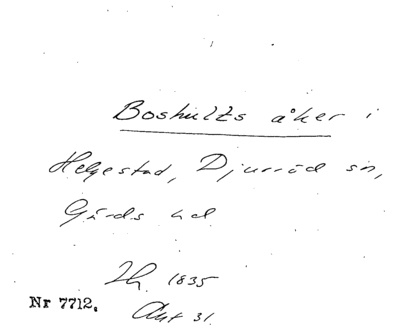 Boshults åker i
Helgestad, Djurröd sn,
Gärds hd
Lh. 1835
Nr 7712.
Akt 31.